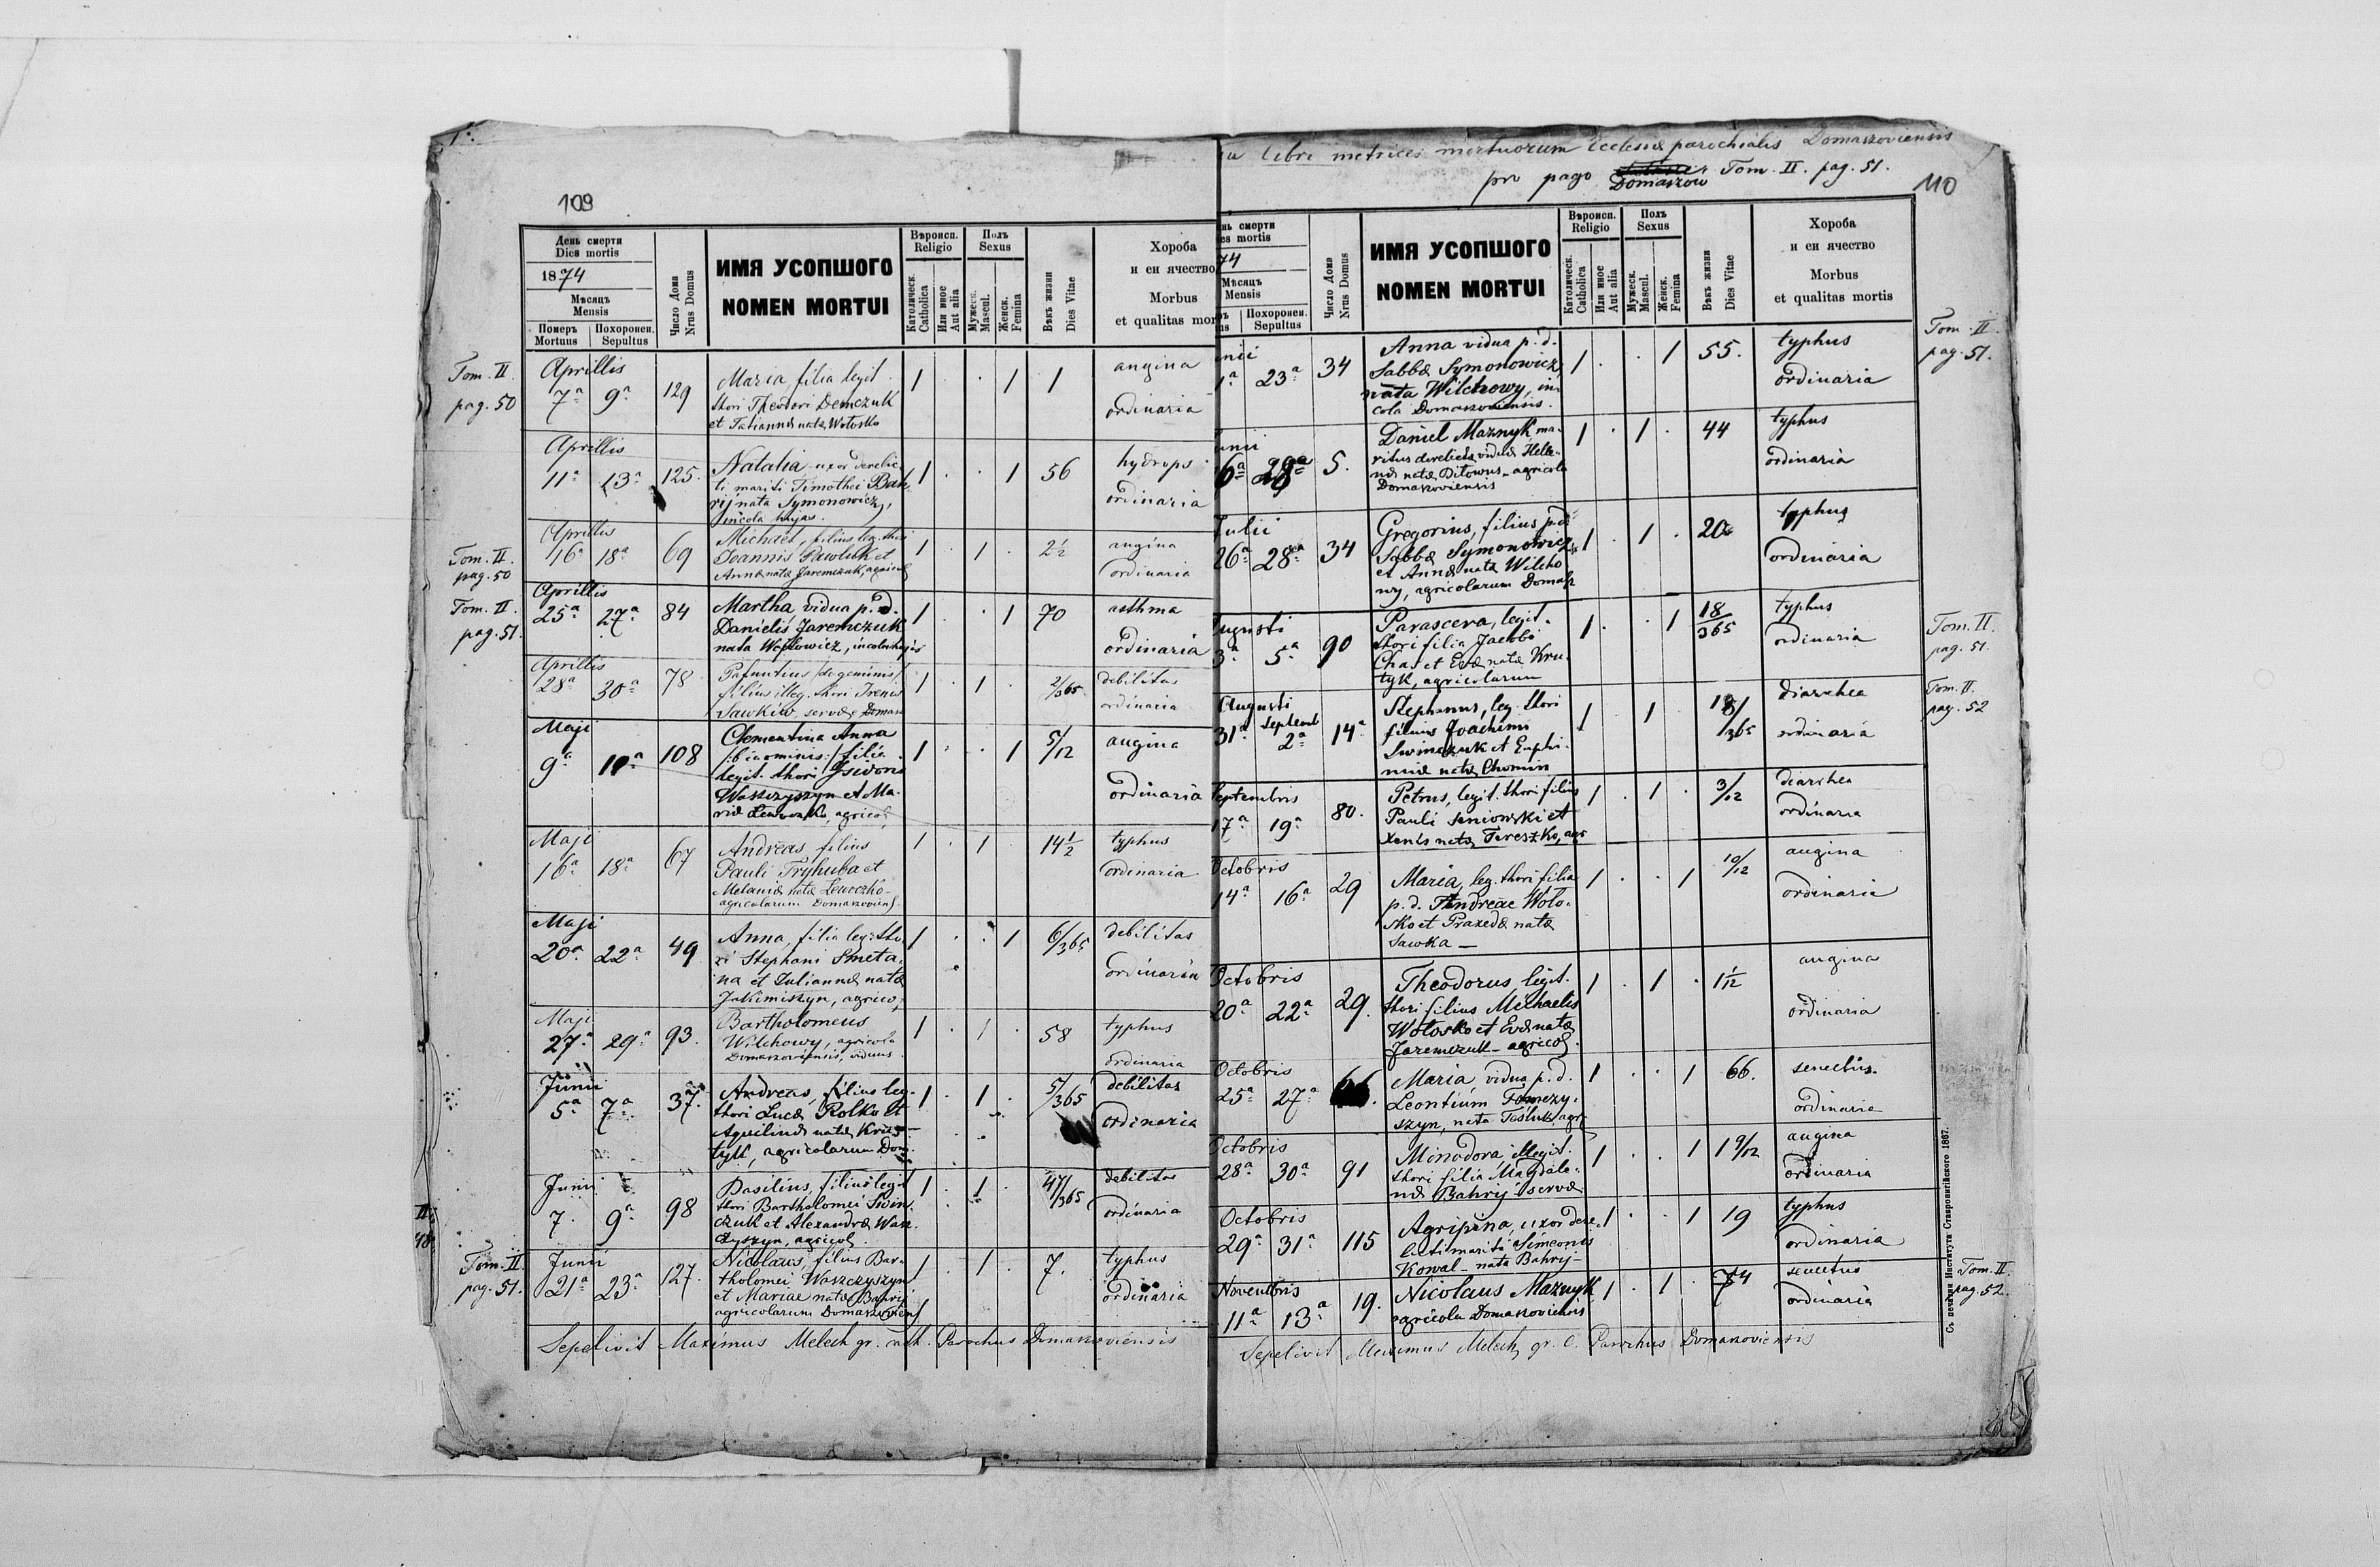 109
День смерти
Dies mortis
1874
Мѣсяцъ
Mensis
Померъ
Mortuus
Похоронен.
Sepultus
Число Дома
Nrus Domus
ИМЯ УСОПШОГО
NOMEN MORTUI
Вѣроисп.
Religio
Католическ.
Catholica
Или иное
Aut alia
Полъ
Sexus
Мужеск.
Mascul.
Женск.
Femina
Вѣкъ жизни
Dies Vitae
Хороба
и еи ячество
Morbus
et qualitas mor
Tom. II.
pag. 50
Aprillis
7ª 9ª 129
Maria, filia legit.
thori Theodori Demczuk
et Tatiannæ natæ Wołosko
1 . . 1 1
angina
ordinaria
Aprillis
11ª 13ª 125.
Natalia uxor derelic
ti mariti Timothei Bah
rij nata Symonowicz,
incola hujas.
1 . . 1 56
hydrops
ordinaria
Tom. II.
pag. 50
Aprillis
16ª 18ª 69
Michael, filius leg. thori
Joannis Pawluk et
Annæ natæ Jaremczuk, agricol
1 . 1 . 2½
angina
ordinaria
Tom. II.
pag. 51.
Aprillis
25ª 27ª 84
Martha vidua p. d.
Danielis Jaremczuk
nata , incola hujas
1 . . 1 70
asthma
ordinaria
Aprillis
28ª 30ª 78
Pafnutius /de geminis/
filius illeg. thori Irenis
Sawkiw, servæ Domasz
1 . 1 . 2/365
debilitas
ordinaria
Maji
9ª 11ª 108
Clementina Anna
/:binominis:/ filia
legit. thori Isidori
Waszczyszyn et Ma-
riæ Lewoczko, agricol
1 . . 1 5/12
angina
ordinaria
Maji
16ª 18ª 67
Andreas, filius
Pauli Tryhuba et
Melaniæ natæ Lewoczko-
agricolarum Domaszoviens
1 . 1 . 14½
typhus
ordinaria
Maji
20ª 22ª 49
Anna, filia leg. tho
ri Stephani Smeta-
na et Juliannæ natæ
Jakimiszyn, agrico,
1 . . 1 6/365
debilitas
ordinaria
Maji
27ª 29ª 93.
Bartholomeus
Wilchowy, agricola
Domaszoviensis, viduus
1 . 1 . 58
typhus
ordinaria
Junii
5ª 7ª 37.
Andreas, filius leg.
thori Lucæ Rolko et
Aquilinæ natæ Kru-
tyk, agricolarum Dom.
1 . 1 . 5/365
debilitas
ordinaria
Junii
7. 9ª 98
Basilius, filius legit
thori Bartholomei Swin-
czuk et Alexandræ Wasz-
czyszyn, agricol
1 . 1 . 47/365
debilitas
ordinaria
Tom. II
pag. 51.
Junii
21ª 23ª 127.
Nicolaus, filius Bar-
tholomei Waszczyszyn
et Mariae natæ Bahrij
agricolarum Domaszoviens
1 . 1 . 7.
typhus
ordinaria
Sepelivit Maximus Melech gr. cath. Parochus Domaszoviensis
libri metrices mortuorum Ecclesiæ parochialis Domaszoviensis
pro pago Domaszow Tom. II. pag. 51.
110
нь смерти
es mortis
74
Мѣсяцъ
Mensis
Похоронен.
Sepultus
Число Дома
Nrus Domus
ИМЯ УСОПШОГО
NOMEN MORTUI
Вѣроисп.
Religio
Католическ.
Catholica
Или иное
Aut alia
Полъ
Sexus
Мужеск.
Mascul.
Женск.
Femina
Вѣкъ жизни
Dies Vitae
Хороба
и еи ячество
Morbus
et qualitas mortis
Tom. II.
pag. 51.
unii
1ª 23ª 34
Anna vidua p. d.
Sabbæ Symonowicz,
nata Wilchowy, in-
cola Domaszoviensis.
1 . . 1 55.
typhus
ordinaria
unii
6ª 28ª 5.
Daniel Maznyk, ma-
ritus derelictæ viduæ Helle-
næ natæ Ditowus - agricola
Domaszoviensis
1 . 1 . 44
typhus
ordinaria
Julii
26ª 28ª 34
Gregorius, filius p. d.
Sabbæ Symonowicz
et Annæ natæ Wilcho
wy, agricolarum Domasz
1 . 1 . 20
typhus
ordinaria
Augusti
3ª 5ª 90
Parascera, legit.
thori filia Jacobi
Cha et Evæ natæ Kru-
tyk, agricolarum
1 . . 1 18/365
typhus
ordinaria
Tom. II.
pag. 51.
Augusti
31ª Septemb 2ª 14ª
Stephanus, leg. thori
filius Joachimi
Swinczuk et Euphi-
miæ natæ Chomin
1 . 1 . 18/365
diarrhea
ordinaria
Tom. II.
pag. 52
Septembris
17ª 19ª 80.
Petrus, legit. thori filius
Pauli Seniowski et
Xenis natæ Tereszko, agr
1 . 1 . 3/12
diarrhea
ordinaria
Octobris
14ª 16ª 29
Maria, leg. thori filia
p. d. Andreae Woło-
sko et Praxedæ natæ
Sawka —
1 . . 1 10/12
angina
ordinaria
Octobris
20ª 22ª 29.
Theodorus, legit.
thori filius Michaelis
Wołosko et Evæ natæ
Jaremczuk - agricol.
1 . 1 . 1 1/12
angina
ordinaria
Octobris
25ª 27ª
Maria, vidua p. d.
Leontium Tomczy-
szyn, nata Tesluk, agr
1 . . 1 66.
senectus
ordinaria
Octobris
28ª 30ª 91
Minodora, illegit.
thori filia Magdale-
næ Bahry servæ
1 . . 1 1 9/12
angina
ordinaria
Octobris
29ª 31ª 115
Agripina, uxor dere-
licti mariti Simeonis
Kowal - nata Bahrij -
1 . . 1 19
typhus
ordinaria
Novembris
11ª 13ª 19.
Nicolaus Maznyk
agricola Domaszoviensis
1 . 1 . 74
senectus
ordinaria
Tom. II.
pag. 52.
Sepelivit Maximus Melech, gr. c. Parochus Domaszoviensis
Съ печатни Института Ставропигійского 1867.